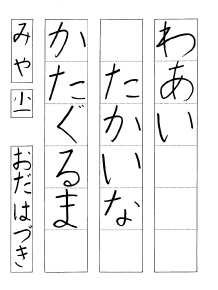 わあい
たかいな
かたぐるま
みや小一おだはづき